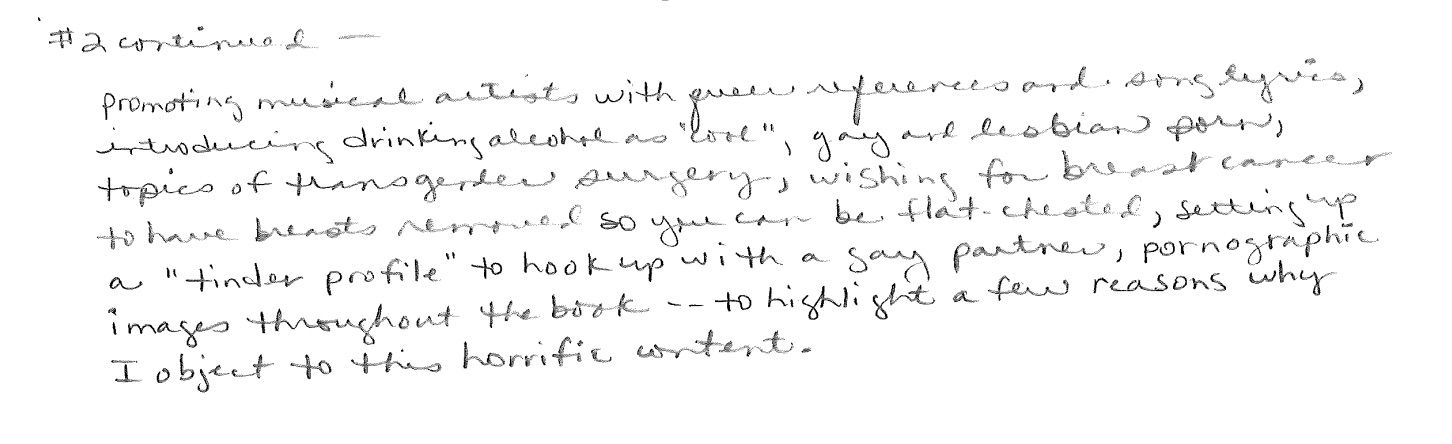 #2 continued —
promoting musical artists with queer references and song lyrics,
introducing drinking alcohol as "cool", gay and lesbian porn,
topics of transgender surgery, wishing for breast cancer
to have breasts removed so you can be flat-chested, setting up
a "tinder profile" to hook up with a gay partner, pornographic
images throughout the book -- to highlight a few reasons why
I object to this horrific content.